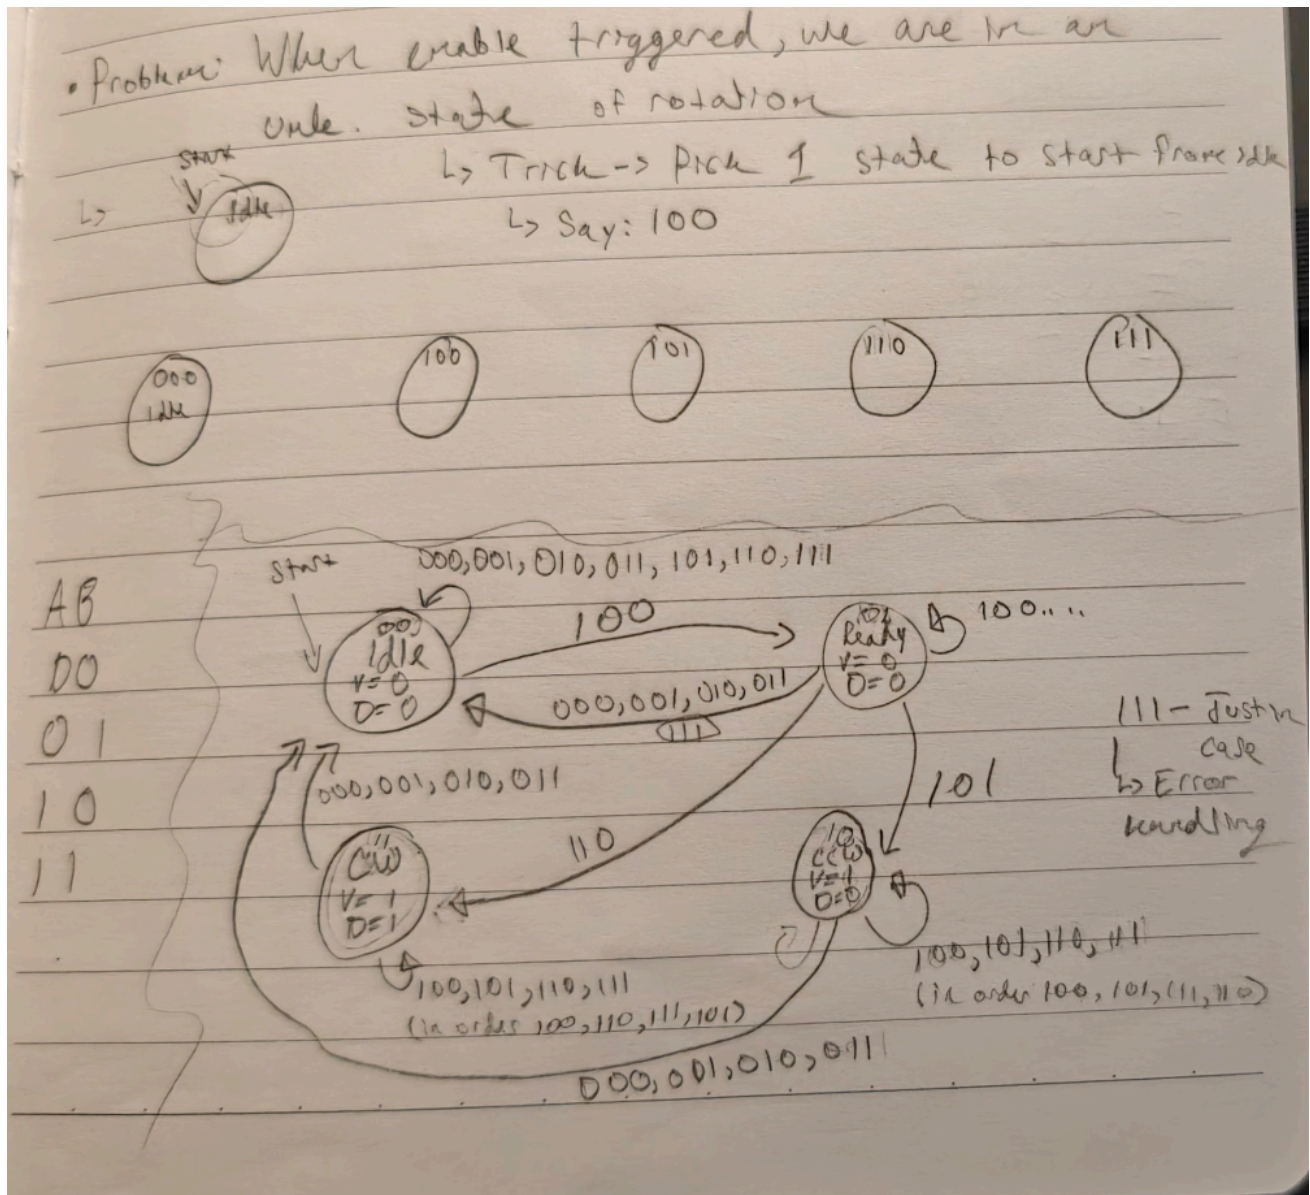 • Problem: When enable triggered, we are in an
unk. state of rotation
↳ Trick -> Pick 1 state to start from idle
↳ Say: 100
Start
↳
Idle
000
Idle
100
101
110
111
AB
00
01
10
11
Start
000,001,010,011,101,110,111
00,
Idle
V=0
D=0
100
01
Ready
V=0
D=0
100....
000,001,010,011
111
111 - Just in
case
↳ Error
handling
101
110
000,001,010,011
11
CW
V=1
D=1
10
CCW
V=1
D=0
100,101,110,111
(in order 100,110,111,101)
100,101,110,111
(in order 100,101,111,110)
000,001,010,011